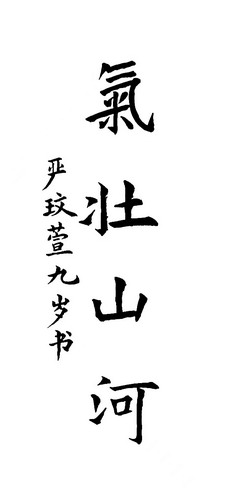 氣壯山河
严玟萱九岁书